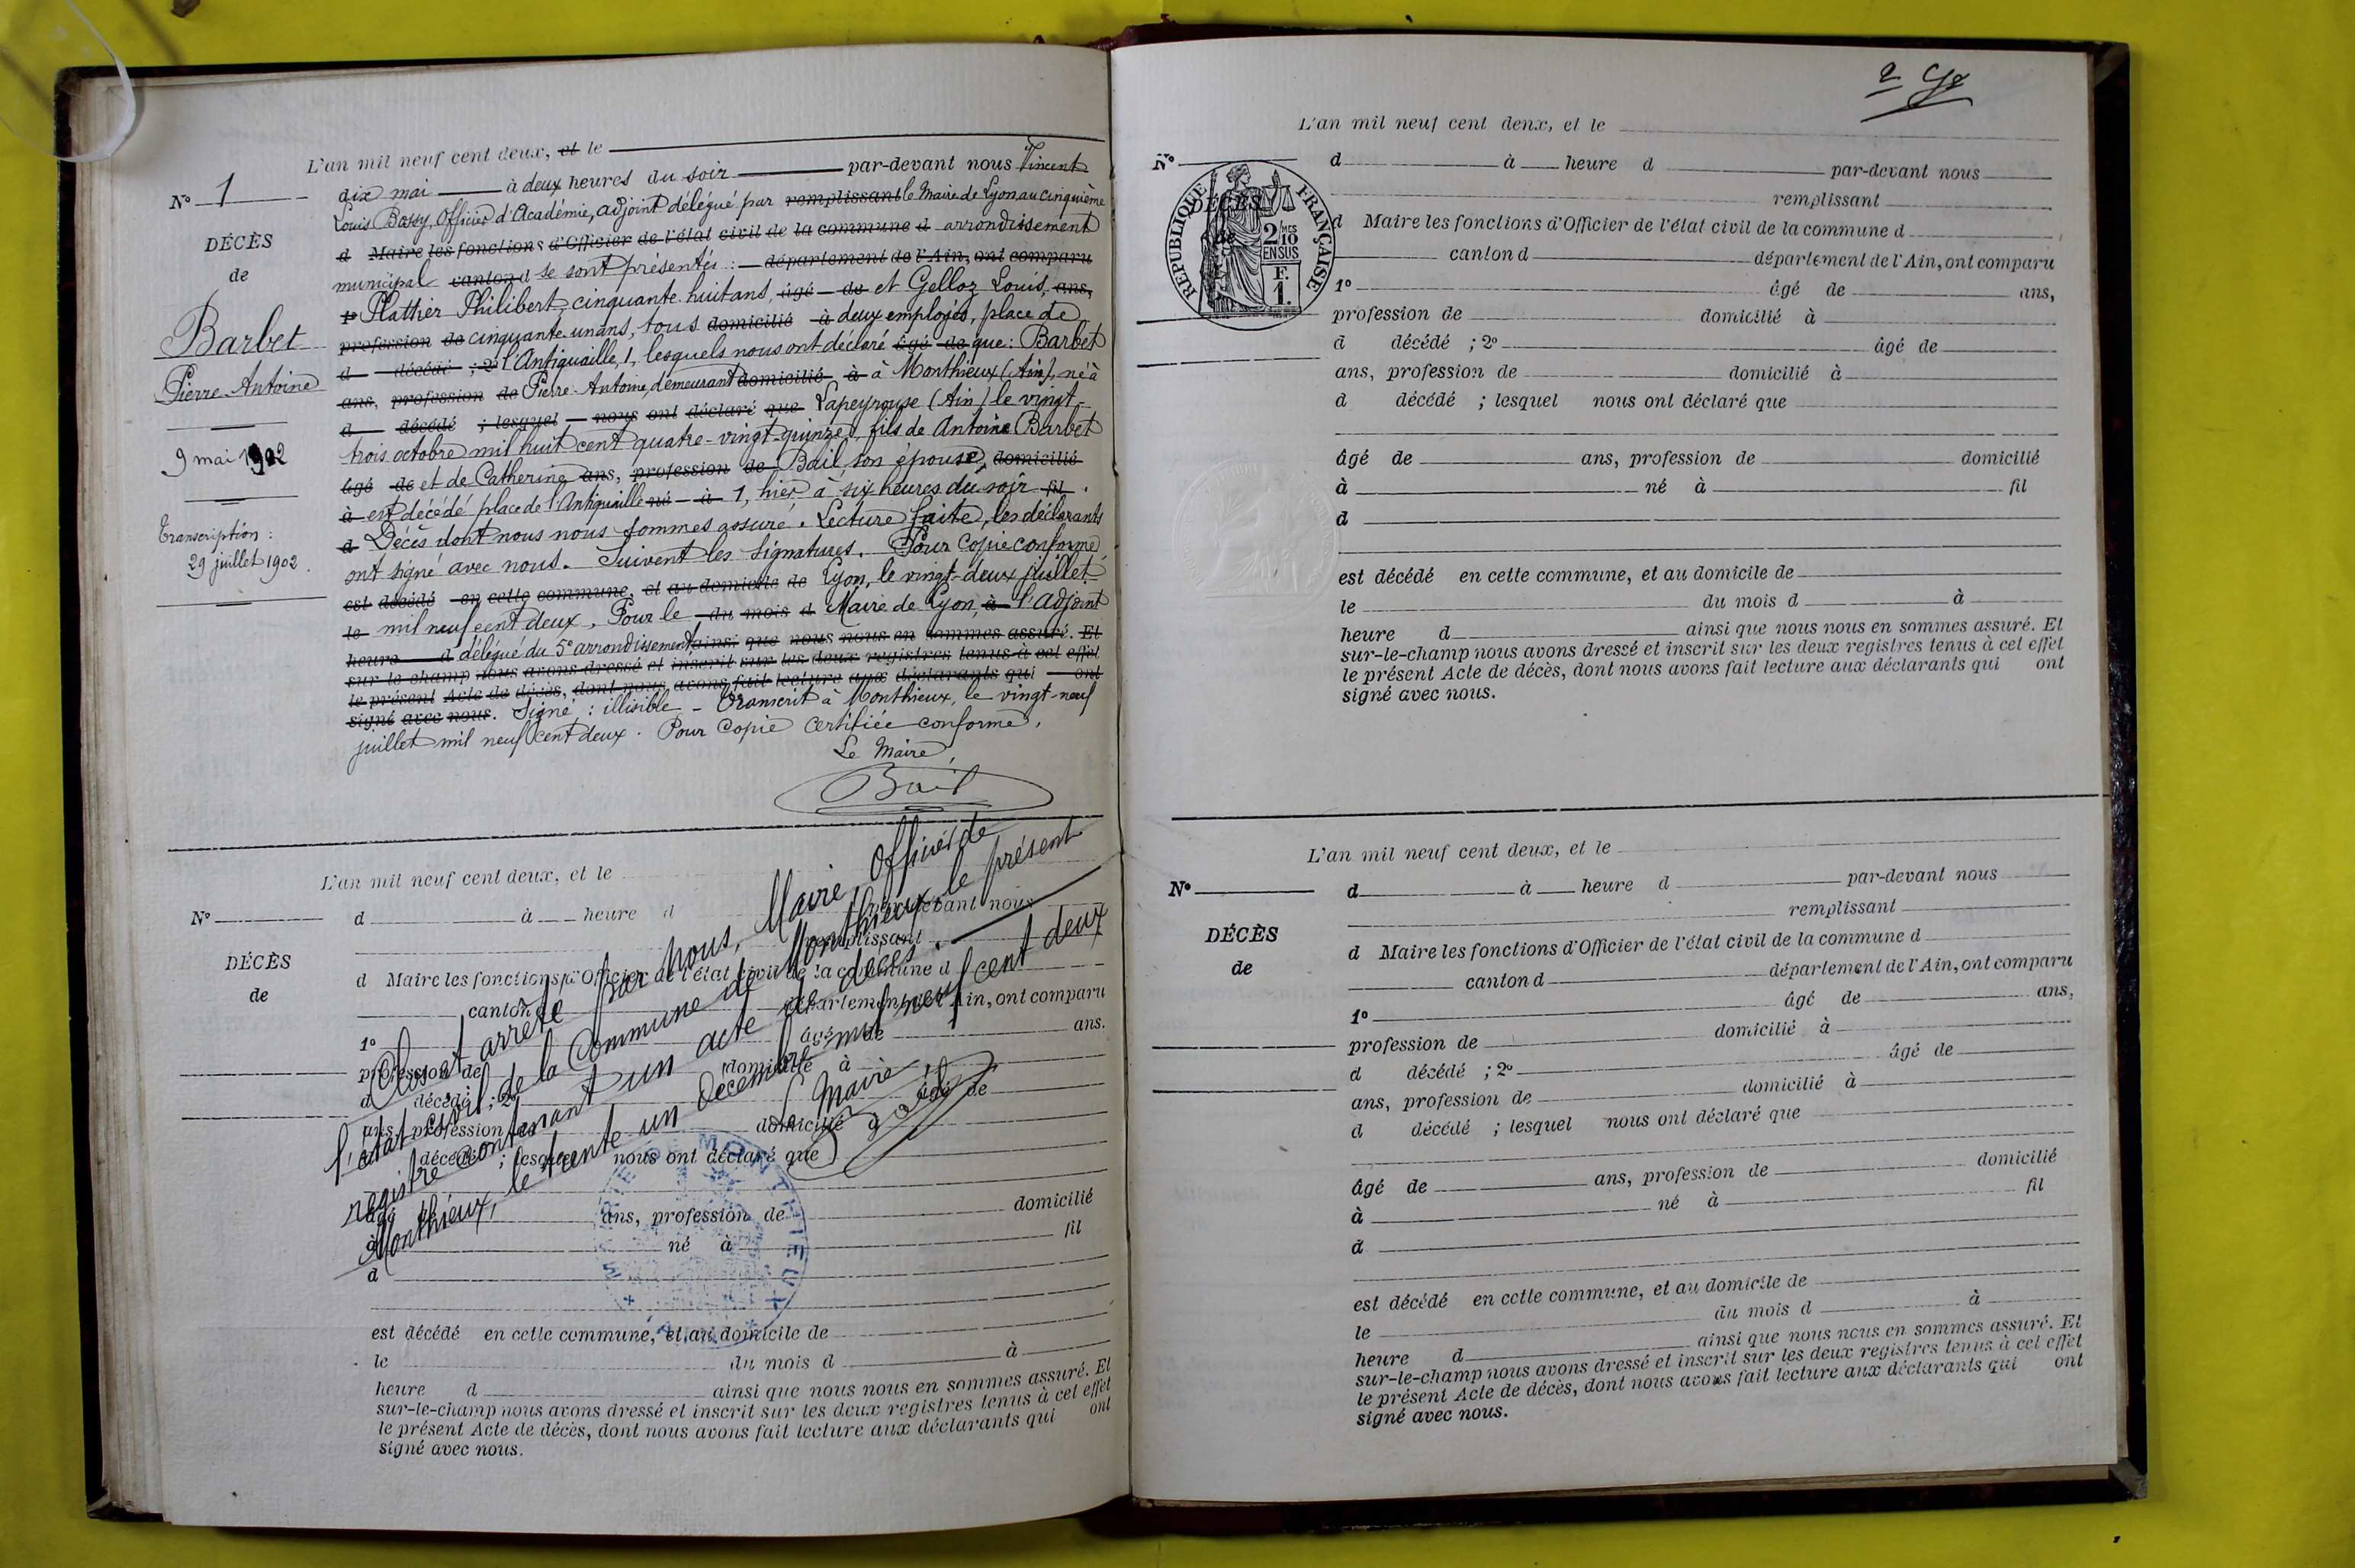 L'an mil neuf cent deux, et le
N° 1
dix mai à deux heures du soir par-devant nous Vincent
Louis Bossy, Officier d'Académie, adjoint délégué par remplissant le Maire de Lyon au cinquième
DÉCÈS
d Maire les fonctions d'Officier de l'état civil de la commune d arrondissement
de
municipal canton d se sont présentés : département de l'Ain, ont comparu
1° Plattier Philibert, cinquante-huit ans, âgé de et Gelloz Louis, ans,
Barbet
profession de cinquante un ans, tous domicilié à deux employés, place de
d décédé ; 2° l'Antiquaille, 1, lesquels nous ont déclaré âgé de que : Barbet
Pierre-Antoine
ans, profession de Pierre-Antoine, demeurant domicilié à à Monthieux (Ain), né à
d décédé ; lesquel nous ont déclaré que Lapeyrouse (Ain) le vingt-
9 mai 1902
trois octobre mil huit cent quatre-vingt-quinze, fils de Antoine Barbet
âgé de et de Catherine ans, profession de Bail, son épouse, domicilié
à est décédé place de l'Antiquaille né à 1, hier à six heures du soir fil .
Transcription :
29 juillet 1902.
d Décès dont nous nous sommes assuré. Lecture faite, les déclarants
ont signé avec nous. Suivent les signatures. Pour Copie conforme,
est décédé en cette commune, et au domicile de Lyon, le vingt-deux juillet
le mil neuf cent deux. Pour le du mois d Maire de Lyon, à l'adjoint
heure d délégué du 5e arrondissement, ainsi que nous nous en sommes assuré. Et
sur-le-champ nous avons dressé et inscrit sur les deux registres tenus à cet effet
le présent Acte de décès, dont nous avons fait lecture aux déclarants qui ont
signé avec nous. Signé : illisible - Transcrit à Monthieux, le vingt-neuf
juillet mil neuf cent deux. Pour Copie certifiée conforme,
Le Maire,
Bail
L'an mil neuf cent deux, et le
N° d à heure d par-devant nous
remplissant
DÉCÈS
d Maire les fonctions d'Officier de l'état civil de la commune d
de
canton d département de l'Ain, ont comparu
1° âgé de ans.
profession de domicilié à
d décédé ; 2° âgé de
ans, profession de domicilié à
d décédé ; lesquel nous ont déclaré que
âgé de ans, profession de domicilié
à né à fil
d
est décédé en cette commune, et au domicile de
le du mois d à
heure d ainsi que nous nous en sommes assuré. Et
sur-le-champ nous avons dressé et inscrit sur les deux registres tenus à cet effet
le présent Acte de décès, dont nous avons fait lecture aux déclarants qui ont
signé avec nous.
Clos et arrêté par nous, Maire, Officier de
l'état civil de la Commune de Monthieux le présent
registre contenant un acte de décès.
Monthieux, le trente un décembre mil neuf cent deux
Le Maire
Bail
MAIRIE DE MONTHIEUX
L'an mil neuf cent deux, et le
N° d à heure d par-devant nous
remplissant
RÉPUBLIQUE FRANÇAISE
2/10 MES
EN SUS
F.
1.
DÉCÈS
de
d Maire les fonctions d'Officier de l'état civil de la commune d
canton d département de l'Ain, ont comparu
1° âgé de ans,
profession de domicilié à
d décédé ; 2° âgé de
ans, profession de domicilié à
d décédé ; lesquel nous ont déclaré que
âgé de ans, profession de domicilié
à né à fil
d
est décédé en cette commune, et au domicile de
le du mois d à
heure d ainsi que nous nous en sommes assuré. Et
sur-le-champ nous avons dressé et inscrit sur les deux registres tenus à cet effet
le présent Acte de décès, dont nous avons fait lecture aux déclarants qui ont
signé avec nous.
L'an mil neuf cent deux, et le
N° d à heure d par-devant nous
remplissant
DÉCÈS
d Maire les fonctions d'Officier de l'état civil de la commune d
de
canton d département de l'Ain, ont comparu
1° âgé de ans,
profession de domicilié à
d décédé ; 2° âgé de
ans, profession de domicilié à
d décédé ; lesquel nous ont déclaré que
âgé de ans, profession de domicilié
à né à fil
d
est décédé en cette commune, et au domicile de
le du mois d à
heure d ainsi que nous nous en sommes assuré. Et
sur-le-champ nous avons dressé et inscrit sur les deux registres tenus à cet effet
le présent Acte de décès, dont nous avons fait lecture aux déclarants qui ont
signé avec nous.